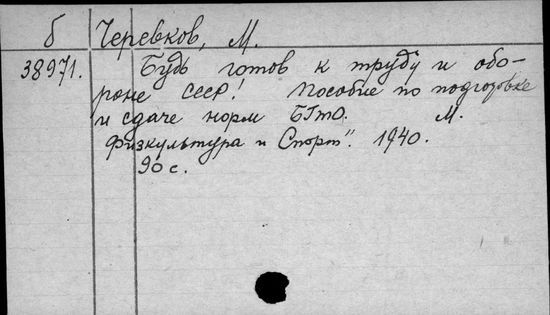 б Черевков, М.
38971. Будь готов к труду и обо-
роне СССР! Пособие по подготовке
и сдаче норм БГТО. М.
Физкультура и Спорт". 1940.
96 с.